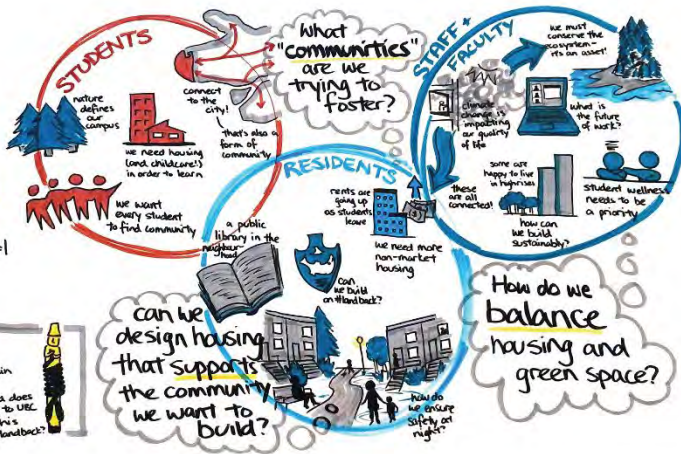 STUDENTS
nature
defines
our
campus
we need housing
(and childcare!)
in order to learn
we want
every student
to find community
connect
to the
city!
that's also a
form of
community
What
"communities"
are we
trying to
foster?
STAFF +
FACULTY
we must
conserve the
ecosystem-
it's an asset!
climate
change is
impacting
our quality
of life
what is
the future
of work?
these
are all
connected!
some are
happy to live
in highrises
how can
we build
sustainably?
student wellness
needs to be
a priority
RESIDENTS
rents are
going up
as students
leave
we need more
non-market
housing
a public
library in the
neighbour-
hood
can
we build
on #landback?
how do
we ensure
safety at
night?
can we
design housing
that supports
the community
we want to
build?
How do we
balance
housing and
green space?
in
does
to UBC
his
landback?